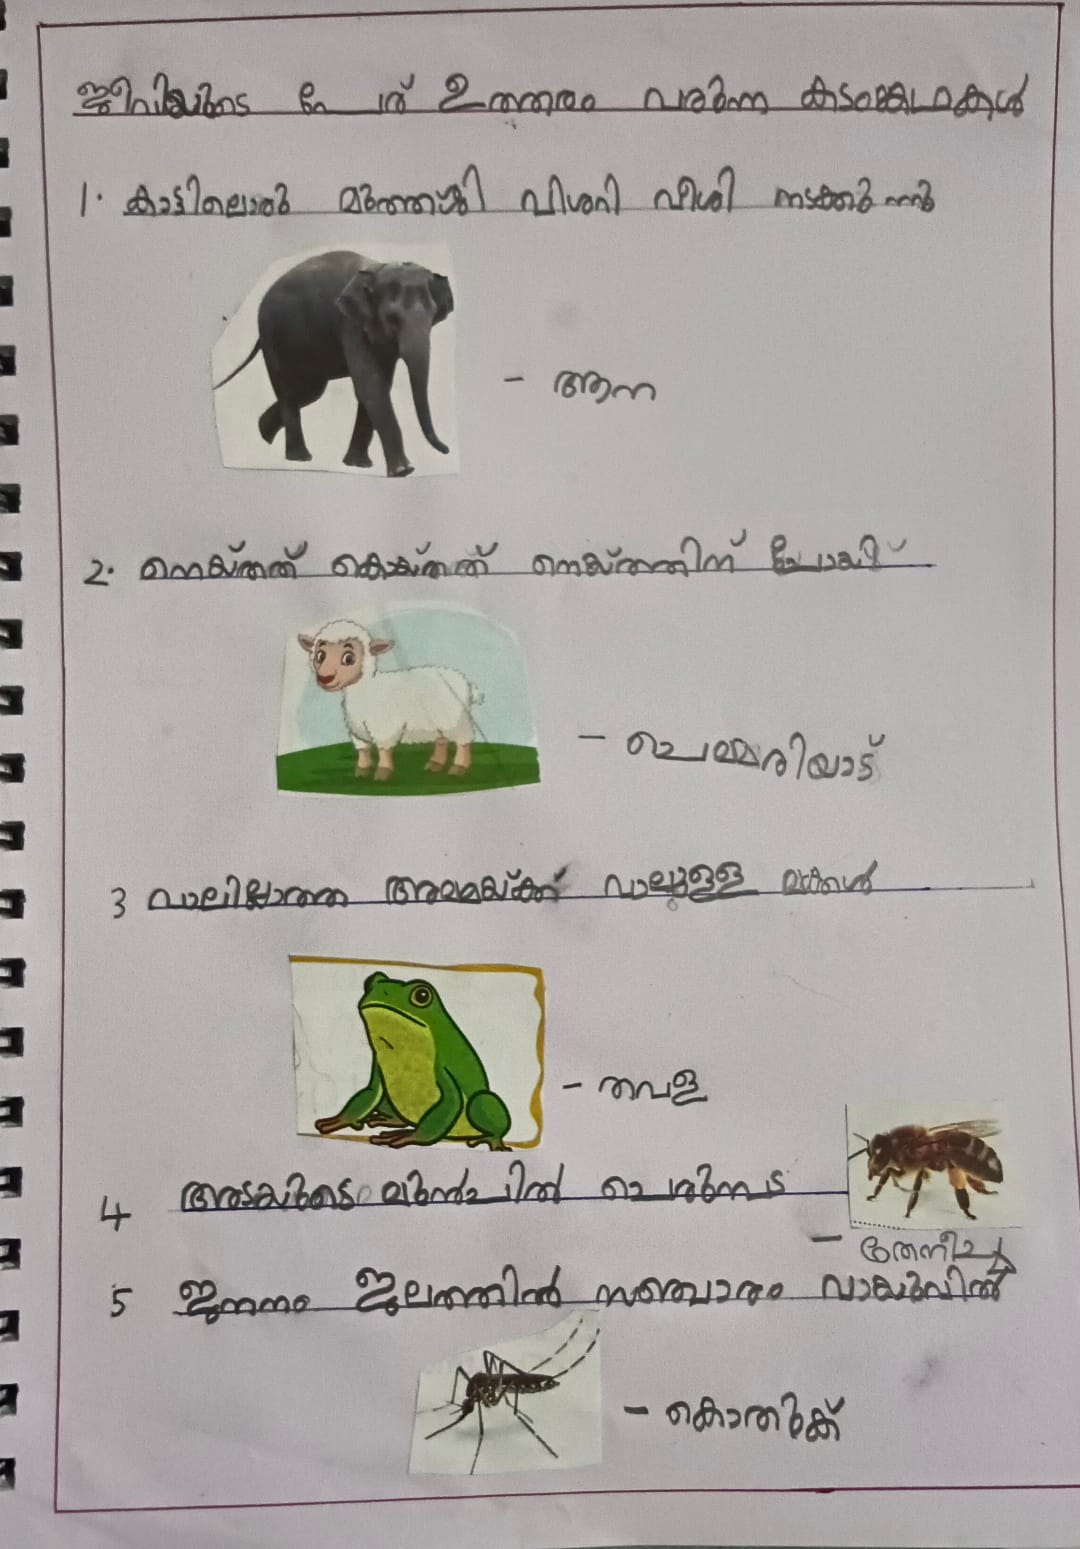 ജീവിയുടെ പേര് ഉത്തരം വരുന്ന കടംങ്കഥകൾ
1. കാട്ടിലൊരു മുത്തശ്ശി വിശറി വീശി നടക്കുന്നു
- ആന
2. നെയ്തത് കൊയ്തത് നെയ്ത്തിന് പോയി
- ചെമ്മരിയാട്
3 വാലില്ലാത്ത അമ്മയ്ക്ക് വാലുള്ള മക്കൾ
- തവള
4 അടയുടെ മുൻപിൽ പെരുമ്പട
- തേനീച്ച
5 ജനനം ജലത്തിൽ സഞ്ചാരം വായുവിൽ
- കൊതുക്